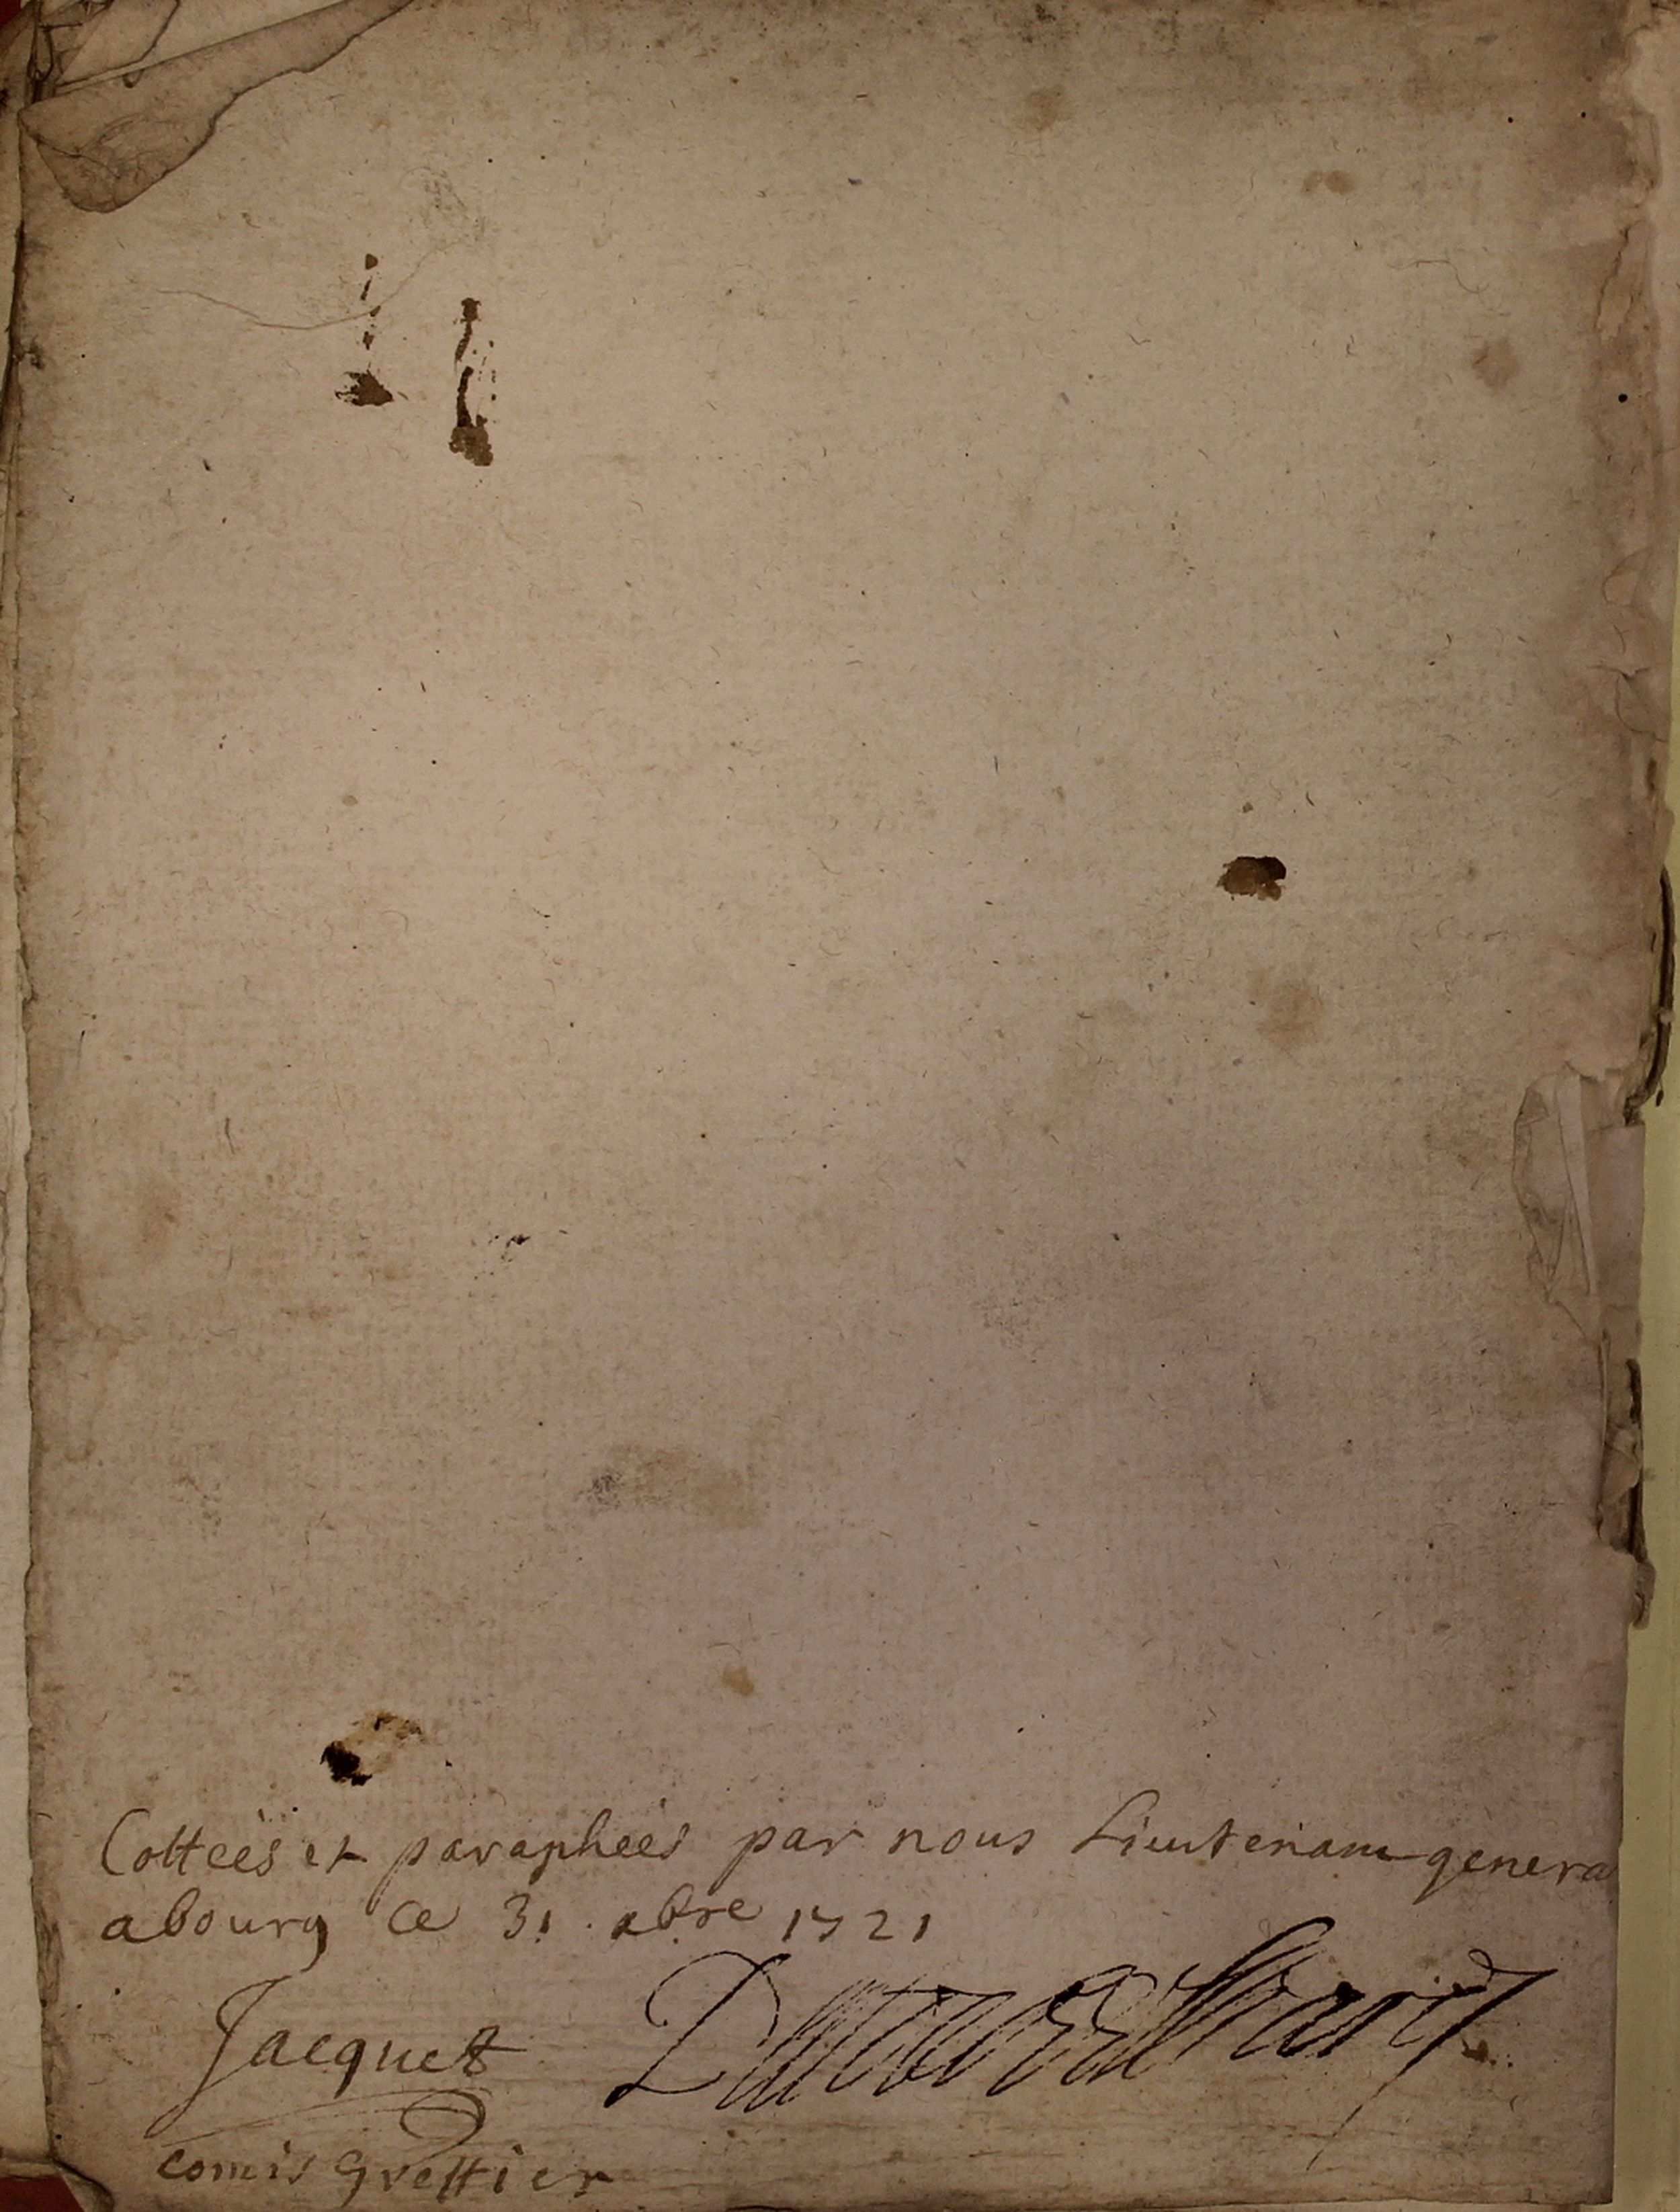 Cottées et paraphées par nous Lieutenant genera
abourg ce 31. xbre 1721
Jacquet
comis Greffier